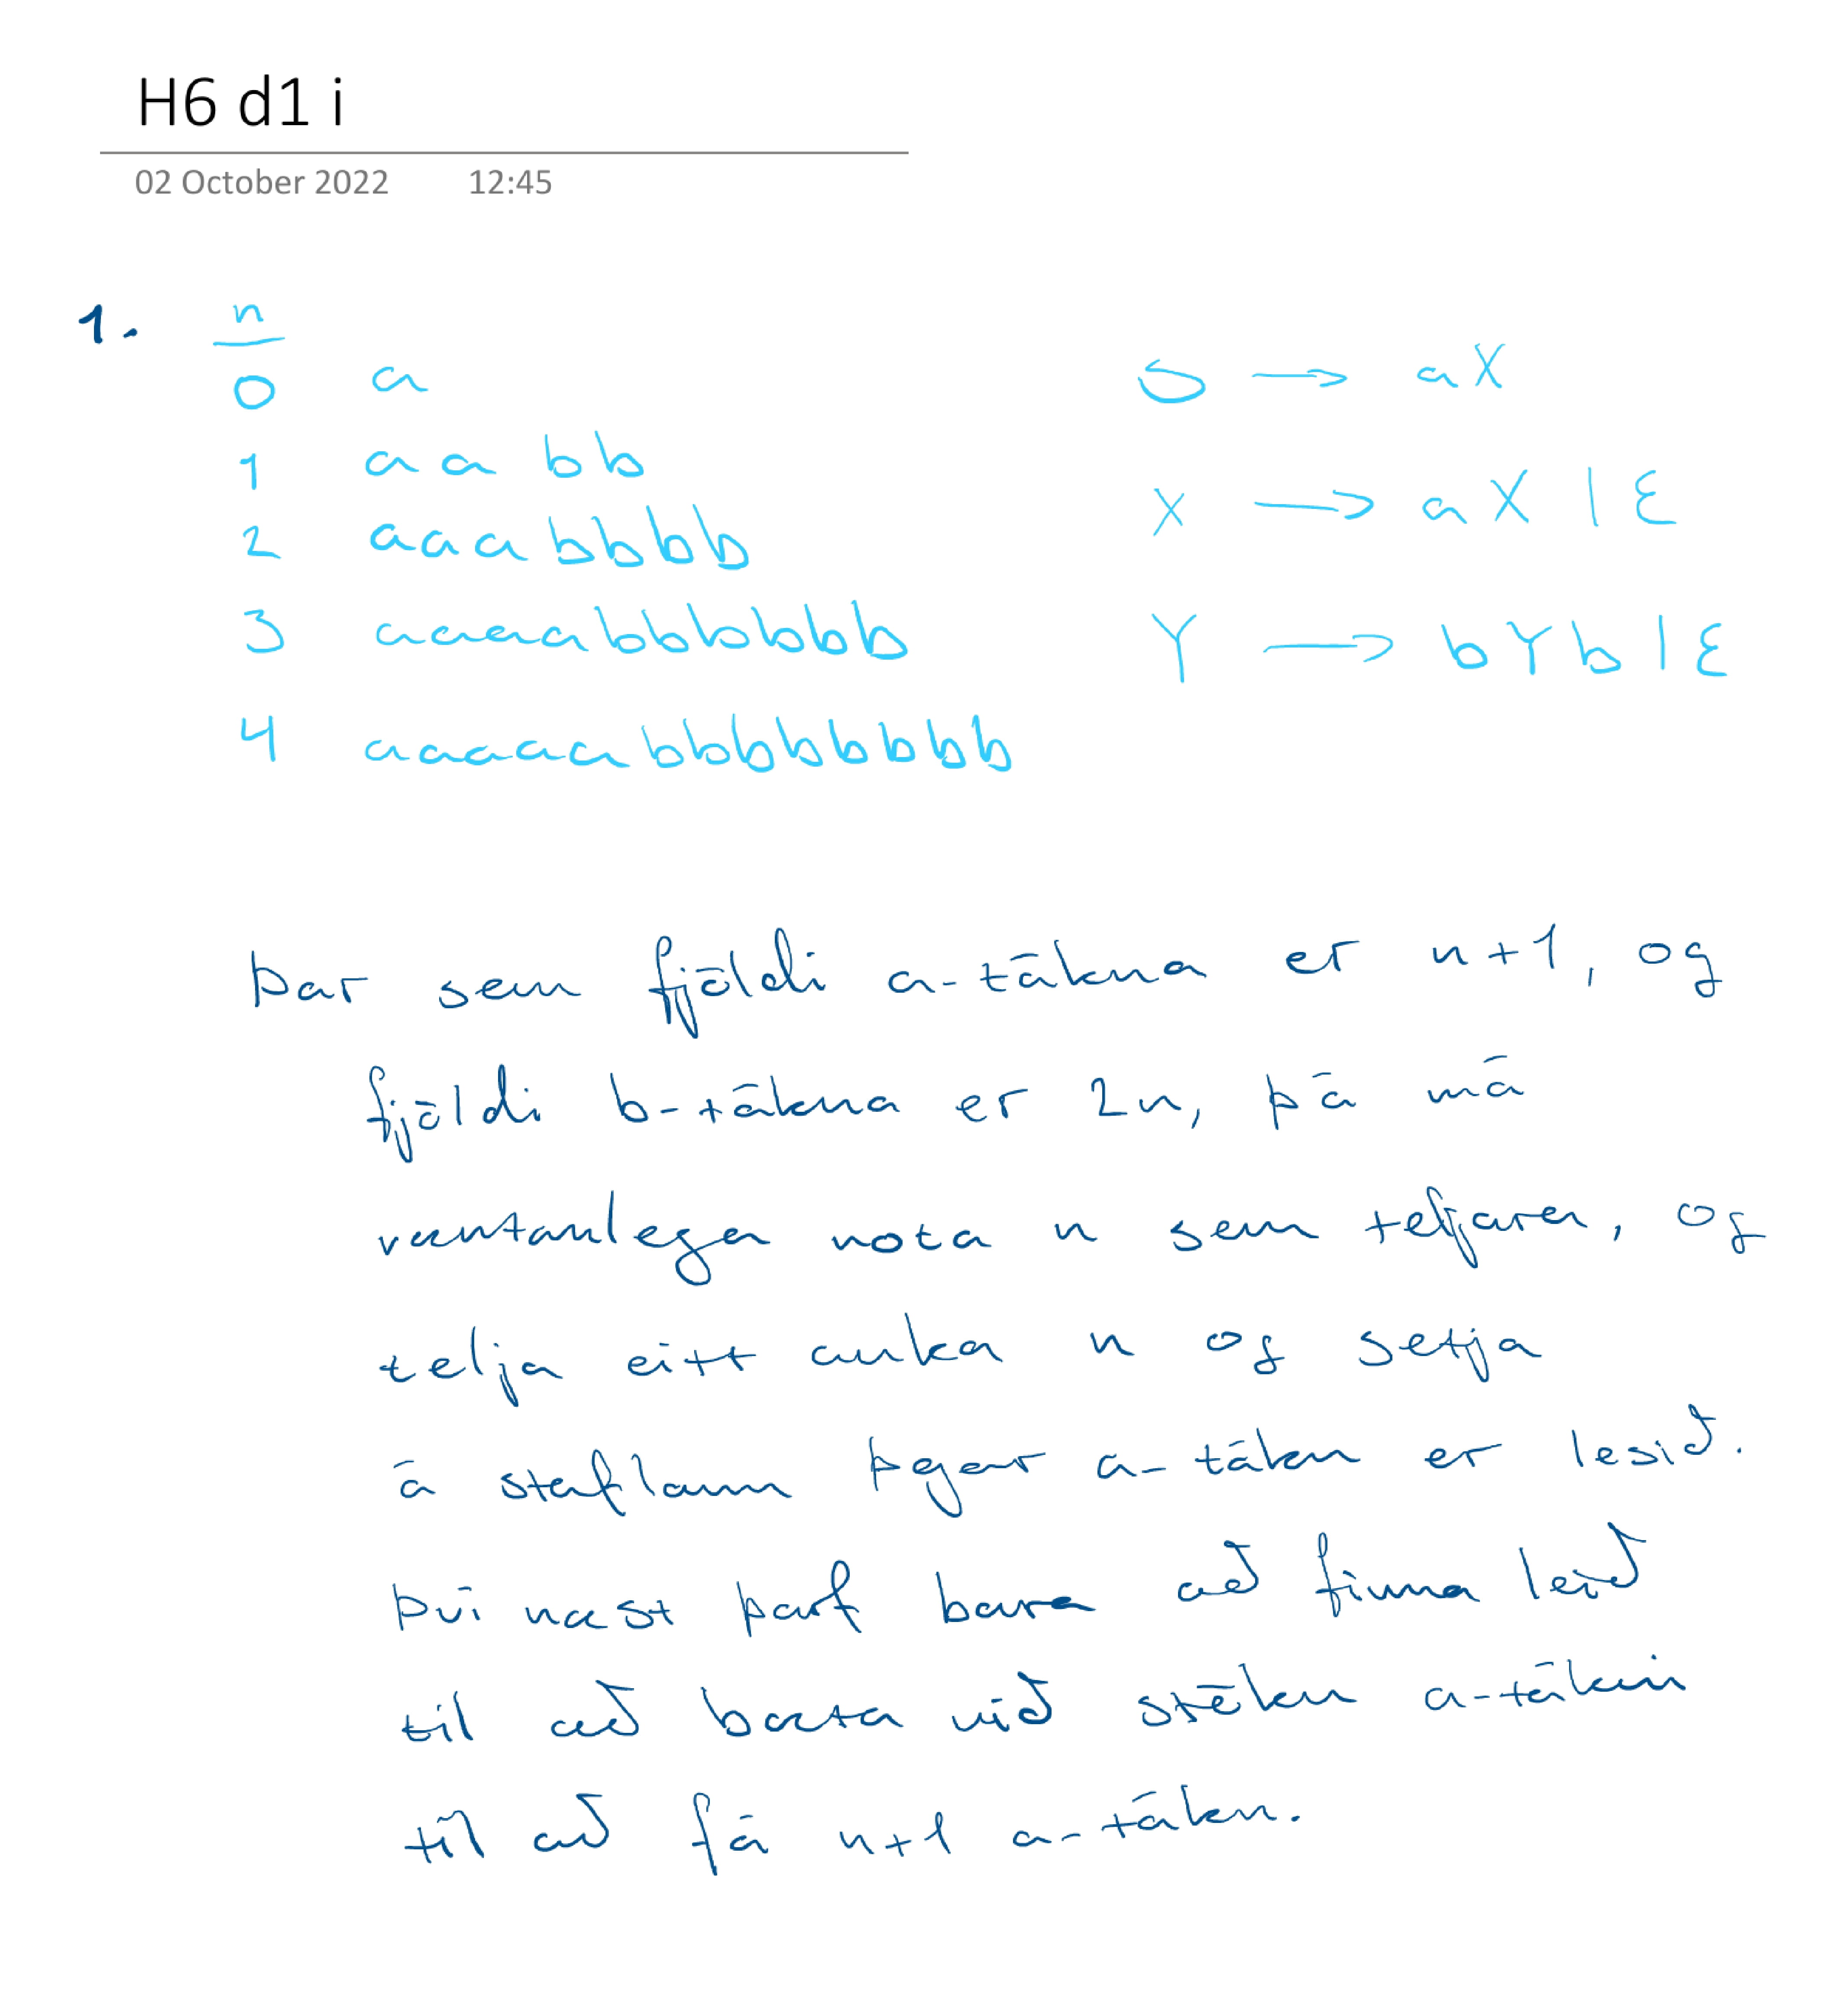 H6 d1 i
02 October 2022 12:45
1. n
0 a S → aX
1 aabb X → aX | ε
2 aaabbbb Y → bYb | ε
3 aaaabbbbbb
4 aaaaabbbbbbbb
Þar sem fjöldi a-tákna er n+1, og
fjöldi b-tákna er 2n, þá má
væntanlega nota n sem teljara, og
telja eitt auka n og setja
á staflann þegar a-tákn er lesið.
Því næst þarf bara að finna leið
til að bæta við stöku a-tákni
til að fá n+1 a-tákn.